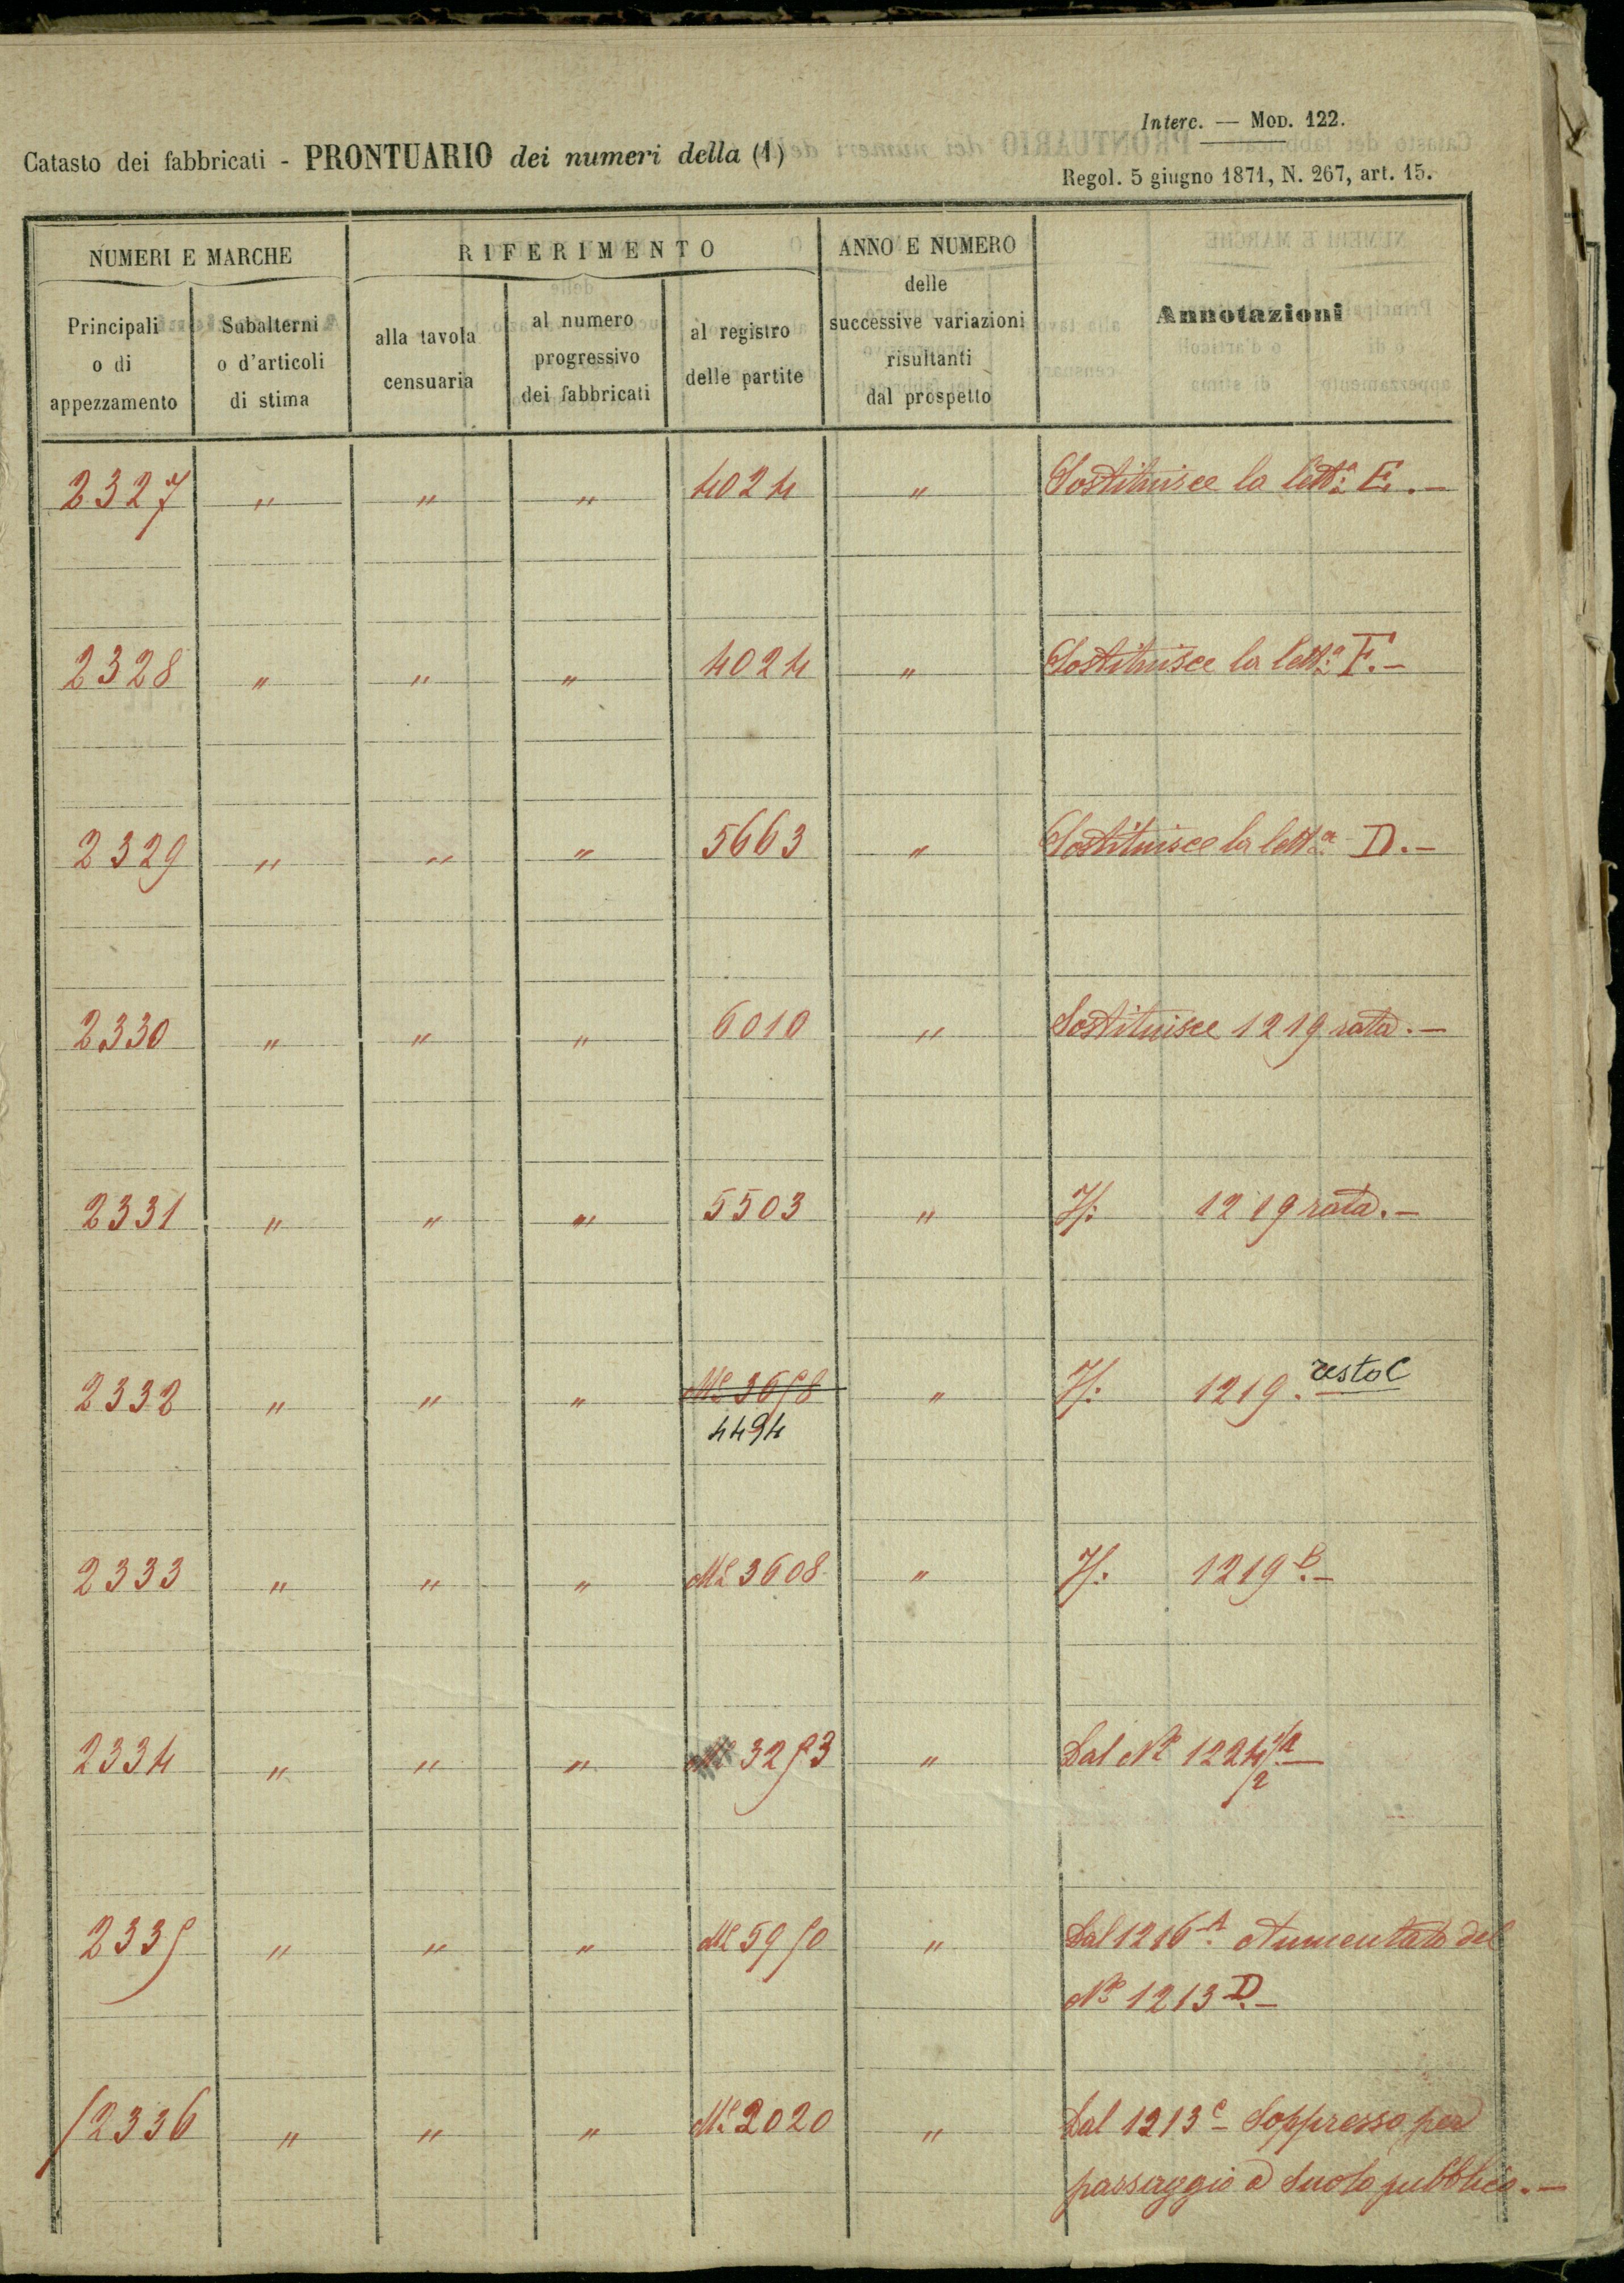 Interc. — MOD. 122.
Catasto dei fabbricati - PRONTUARIO dei numeri della (1)
Regol. 5 giugno 1871, N. 267, art. 15.
NUMERI E MARCHE RIFERIMENTO ANNO E NUMERO delle successive variazioni risultanti dal prospetto Annotazioni
Principali o di appezzamento Subalterni o d'articoli di stima alla tavola censuaria al numero progressivo dei fabbricati al registro delle partite
2327 " " " 4024 " Sostituisce la lett:a E. . —
2328 " " " 4024 " Sostituisce la lett:a F. —
2329 " " " 5663 " Sostituisce la lett:a D. —
2330 " " " 6010 " Sostituisce 1219 rata. —
2331 " " " 5503 " If: 1219 rata. —
2332 " " " 3658 " If: 1219. resto C
4494
2333 " " " 3608 " If: 1219 B. —
2334 " " " 3253 " Dal No 1224 1/2 —
2335 " " " 5950 " Dal 1216 A. Aumentato del
No 1213 D. —
2336 " " " 2020 " Dal 1213 C — Soppresso per
passaggio a Suolo pubblico. —